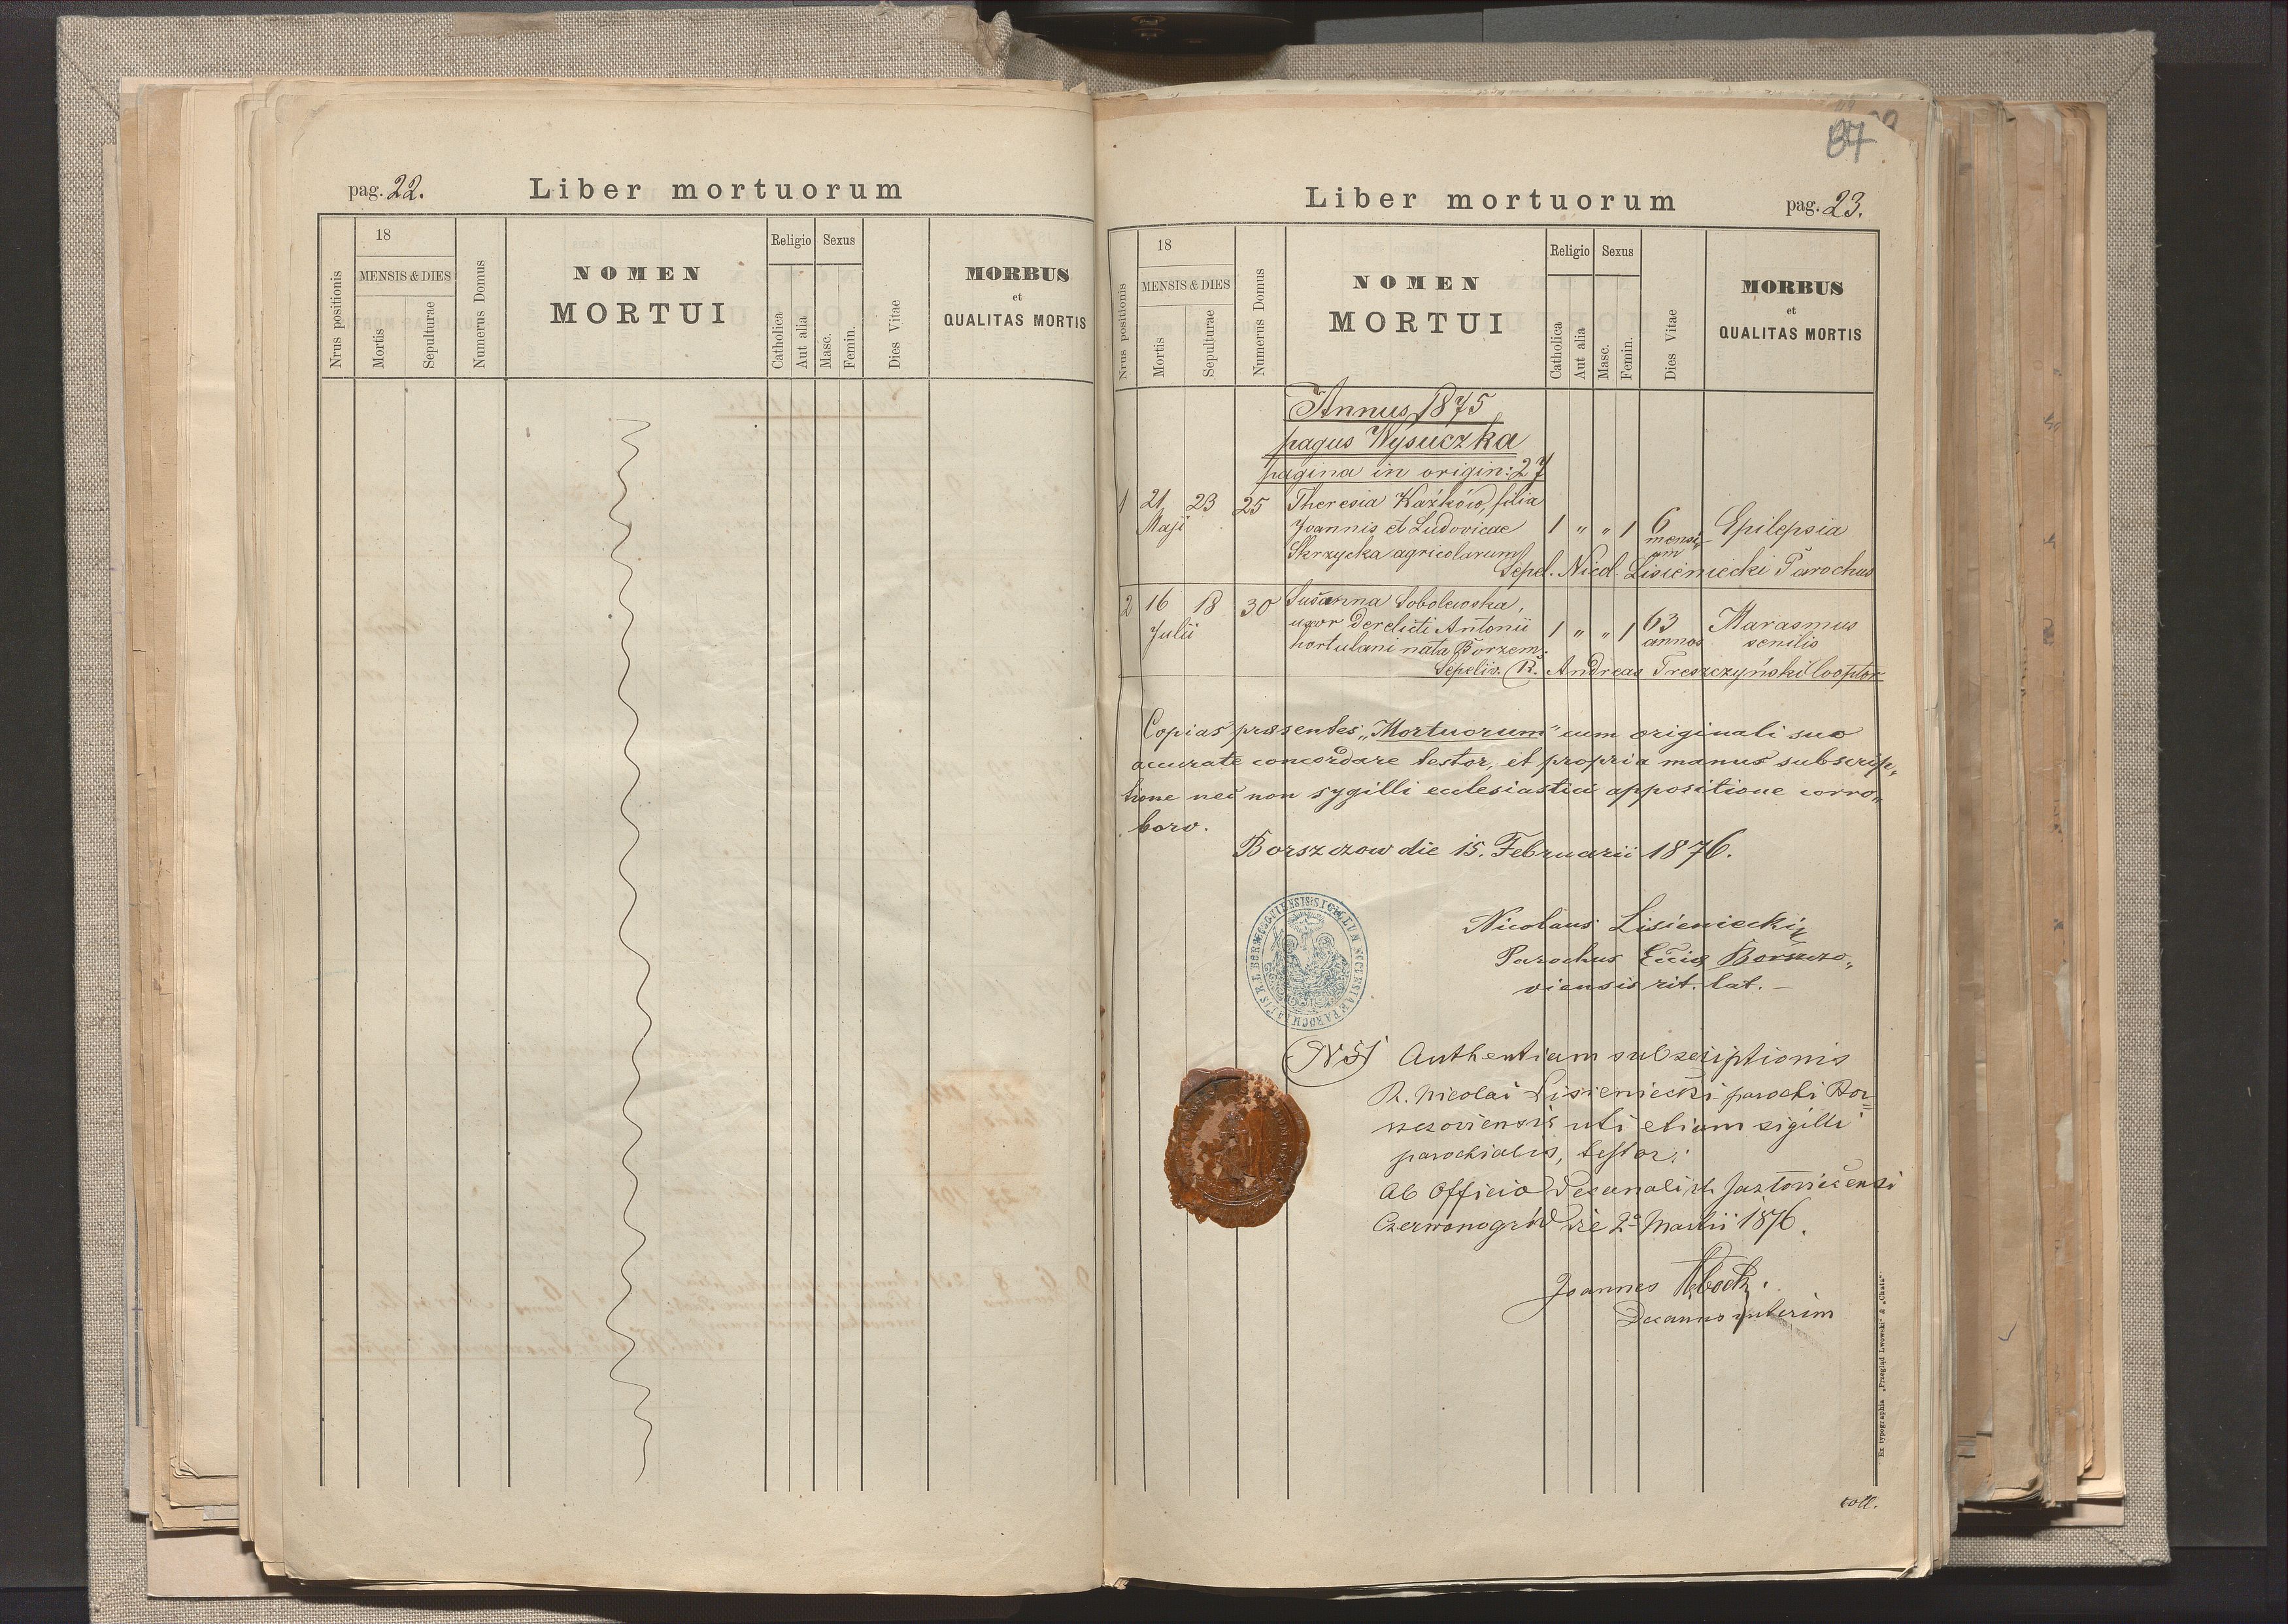 pag. 22.
Liber mortuorum
Nrus positionis
18
MENSIS & DIES
Mortis
Sepulturae
Numerus Domus
NOMEN
MORTUI
Religio
Catholica
Aut alia
Sexus
Masc.
Femin.
Dies Vitae
MORBUS
et
QUALITAS MORTIS
87
Liber mortuorum
pag. 23.
Nrus positionis
18
MENSIS & DIES
Mortis
Sepulturae
Numerus Domus
NOMEN
MORTUI
Religio
Catholica
Aut alia
Sexus
Masc.
Femin.
Dies Vitae
MORBUS
et
QUALITAS MORTIS
Annus 1875
pagus Wysuczka
pagina in origin: 27
1 21 23 25 Theresia Kaźków, filia
Maji Joannis et Ludovicae 1 " " 1 6 mensi- Epilepsia
Skrzycka agricolarum um
Sepel. Nicol. Lisieniecki Parochus
2 16 18 30 Susanna Sobolewska,
Julii uxor derelicti Antonii 1 " " 1 63 Marasmus
hortulani nata Borzem. annos senilis
Sepeliv. R. Andreas Treszczyński Cooptor
Copias præsentes „Mortuorum" cum originali suo
accurate concordare testor, et propria manus subscrip„
tione nec non sygilli ecclesiastici appositione corro„
boro.
Borszczow die 15. Februarii 1876.
Nicolaus Lisieniecki
Parochus Ecciæ Borszczo„
viensis rit. lat. —
SIGILLUM ECCLESIAE PAROCHIALIS R. L. BORSZCZOVIENSIS
Authentiam subscriptionis
R. Nicolai Lisieniecki parochi Bor=
szczoviensis uti etiam sigilli
parochialis, testor.
Ab Officio Decanali
Czerwonogród die 2a Martii 1876.
Joannes
Decanus interim
Ex typographia „Przegląd Lwowski" & „Chata".
coll.